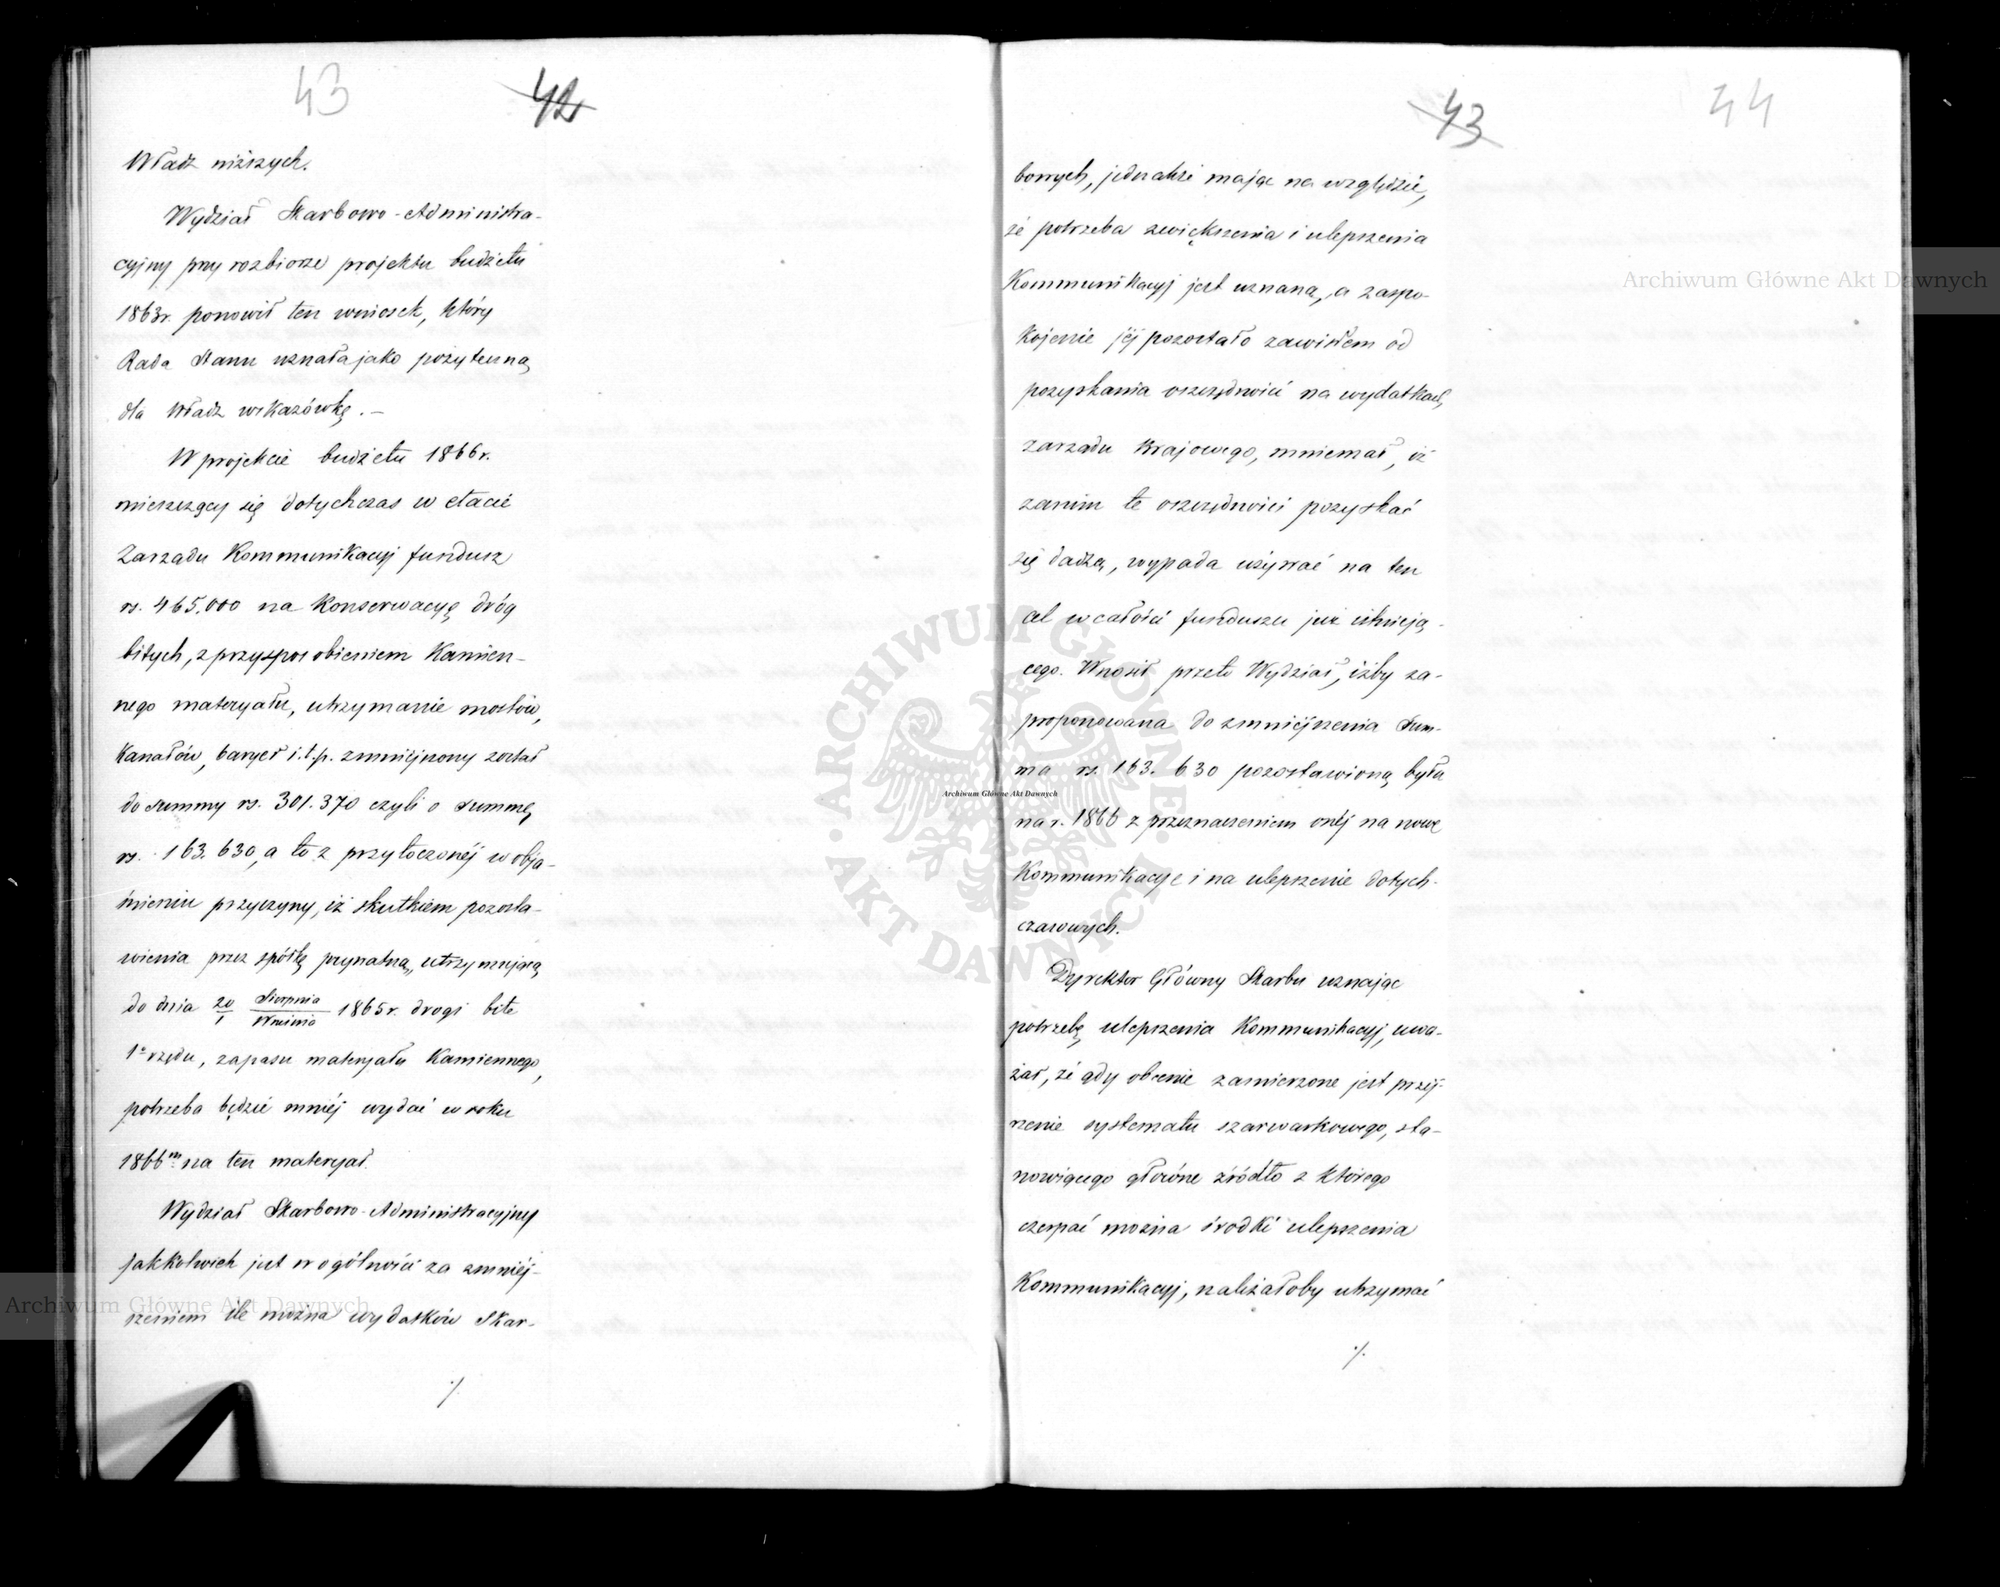 43
42
Władz niższych.
Wydział Skarbowo-Administra-
cyjny przy rozbiorze projektu budżetu
1863r. ponowił ten wniosek, który
Rada Stanu uznała jako pożyteczną
dla Władz wskazówkę. –
W projekcie budżetu 1866r.
mieszczący się dotychczas w etacie
Zarządu Kommunikacyj fundusz
rs. 465.000 na Konserwacyę dróg
bitych, z przysposobieniem Kamien-
nego materyału, utrzymanie mostów,
Kanałów, baryer i.t.p. zmniéjszony został
do summy rs. 301.370 czyli o summę
rs. 163.630, a to z przytoczonéj w obja-
śnieniu przyczyny, iż skutkiem pozosta-
wienia przez spółkę prywatną, utrzymującą
do dnia 20/1 Sierpnia/Września 1865r. drogi bite
1º rzędu, zapasu materyału Kamiennego,
potrzeba będzie mniéj wydać w roku
1866m na ten materyał.
Wydział Skarbowo-Administracyjny
jakkolwiek jest w ogólności za zmniéj-
szeniem ile można wydatków Skar-
./.
43
44
bowych, jednakże mając na względzie,
że potrzeba zwiększenia i ulepszenia
Kommunikacyj jest uznaną, a zaspo-
kojenie jéj pozostało zawisłem od
pozyskania oszczędności na wydatkach
zarządu Krajowego, mniemał, iż
zanim te oszczędności pozyskać
się dadzą, wypada używać na ten
cel w całości funduszu już istnieją-
cego. Wnosił przeto Wydział, iżby za-
proponowana do zmniéjszenia Sum-
ma rs. 163.630 pozostawioną była
na r. 1866 z przeznaczeniem onéj na nowe
Kommunikacye i na ulepszenie dotych-
czasowych.
Dyrektor Główny Skarbu uznając
potrzebę ulepszenia Kommunikacyj, uwa-
żał, że gdy obecnie zamierzone jest przéj-
rzenie systematu szarwarkowego, sta-
nowiącego główne źródło z którego
czerpać można środki ulepszenia
Kommunikacyj, należałoby utrzymać
./.
Archiwum Główne Akt Dawnych
Archiwum Główne Akt Dawnych
Archiwum Główne Akt Dawnych
ARCHIWUM GŁÓWNE AKT DAWNYCH